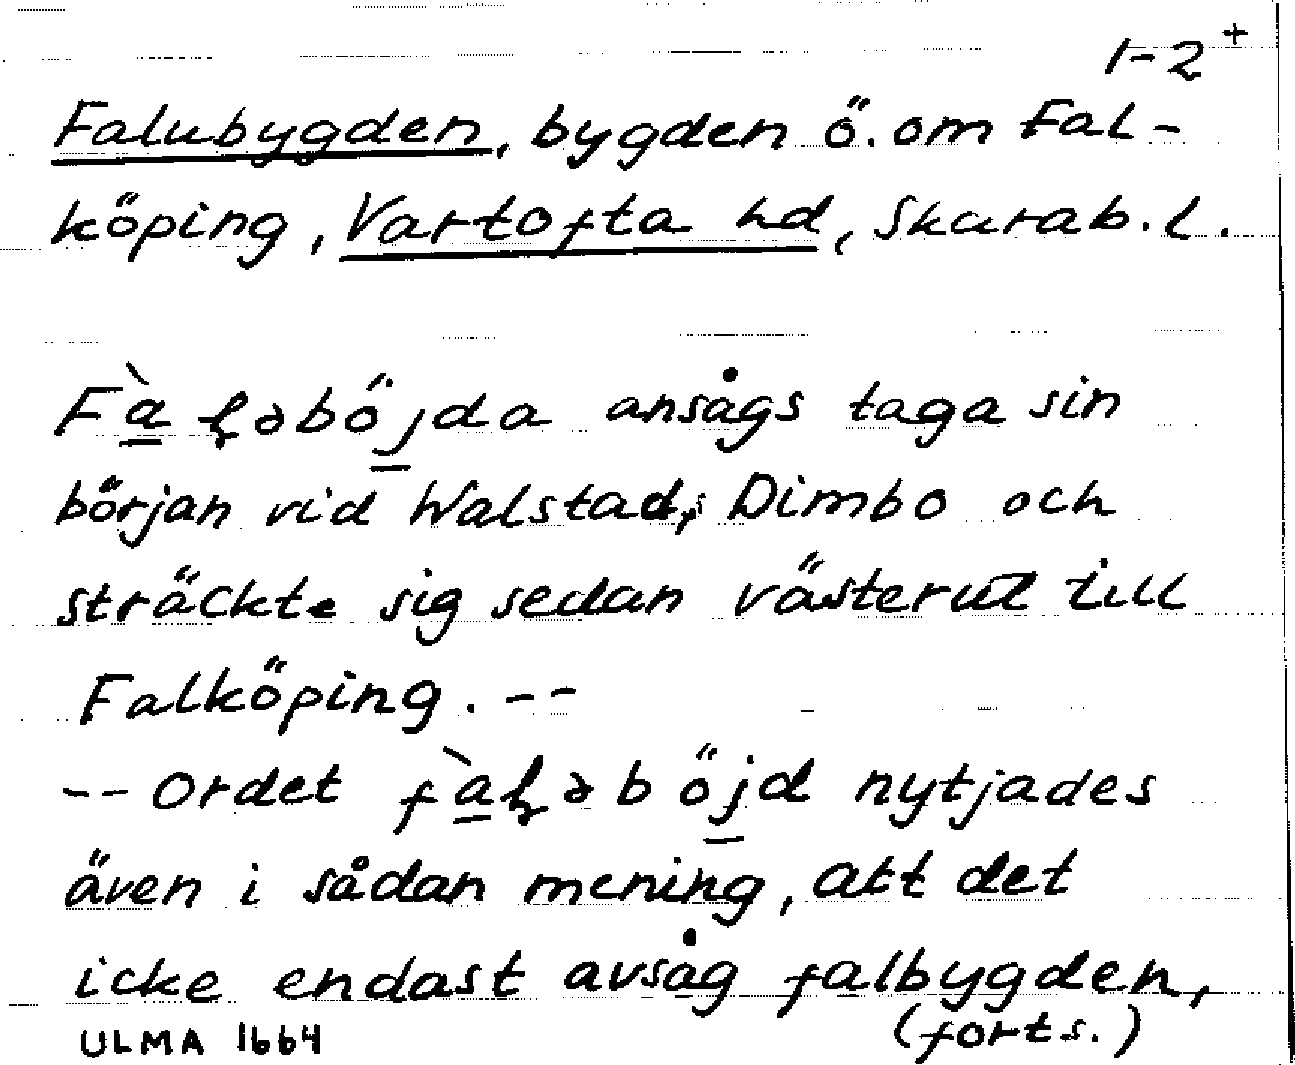 1-2+
Falubygden, bygden ö. om Fal-
köping, Vartofta hd, Skarab. l.
Fàɽəböjda ansågs taga sin
början vid Walstad, Dimbo och
sträckte sig sedan västerut till
Falköping. --
-- Ordet fàɽəböjd nytjades
även i sådan mening, att det
icke endast avsåg falbygden,
(forts.)
ULMA 1664